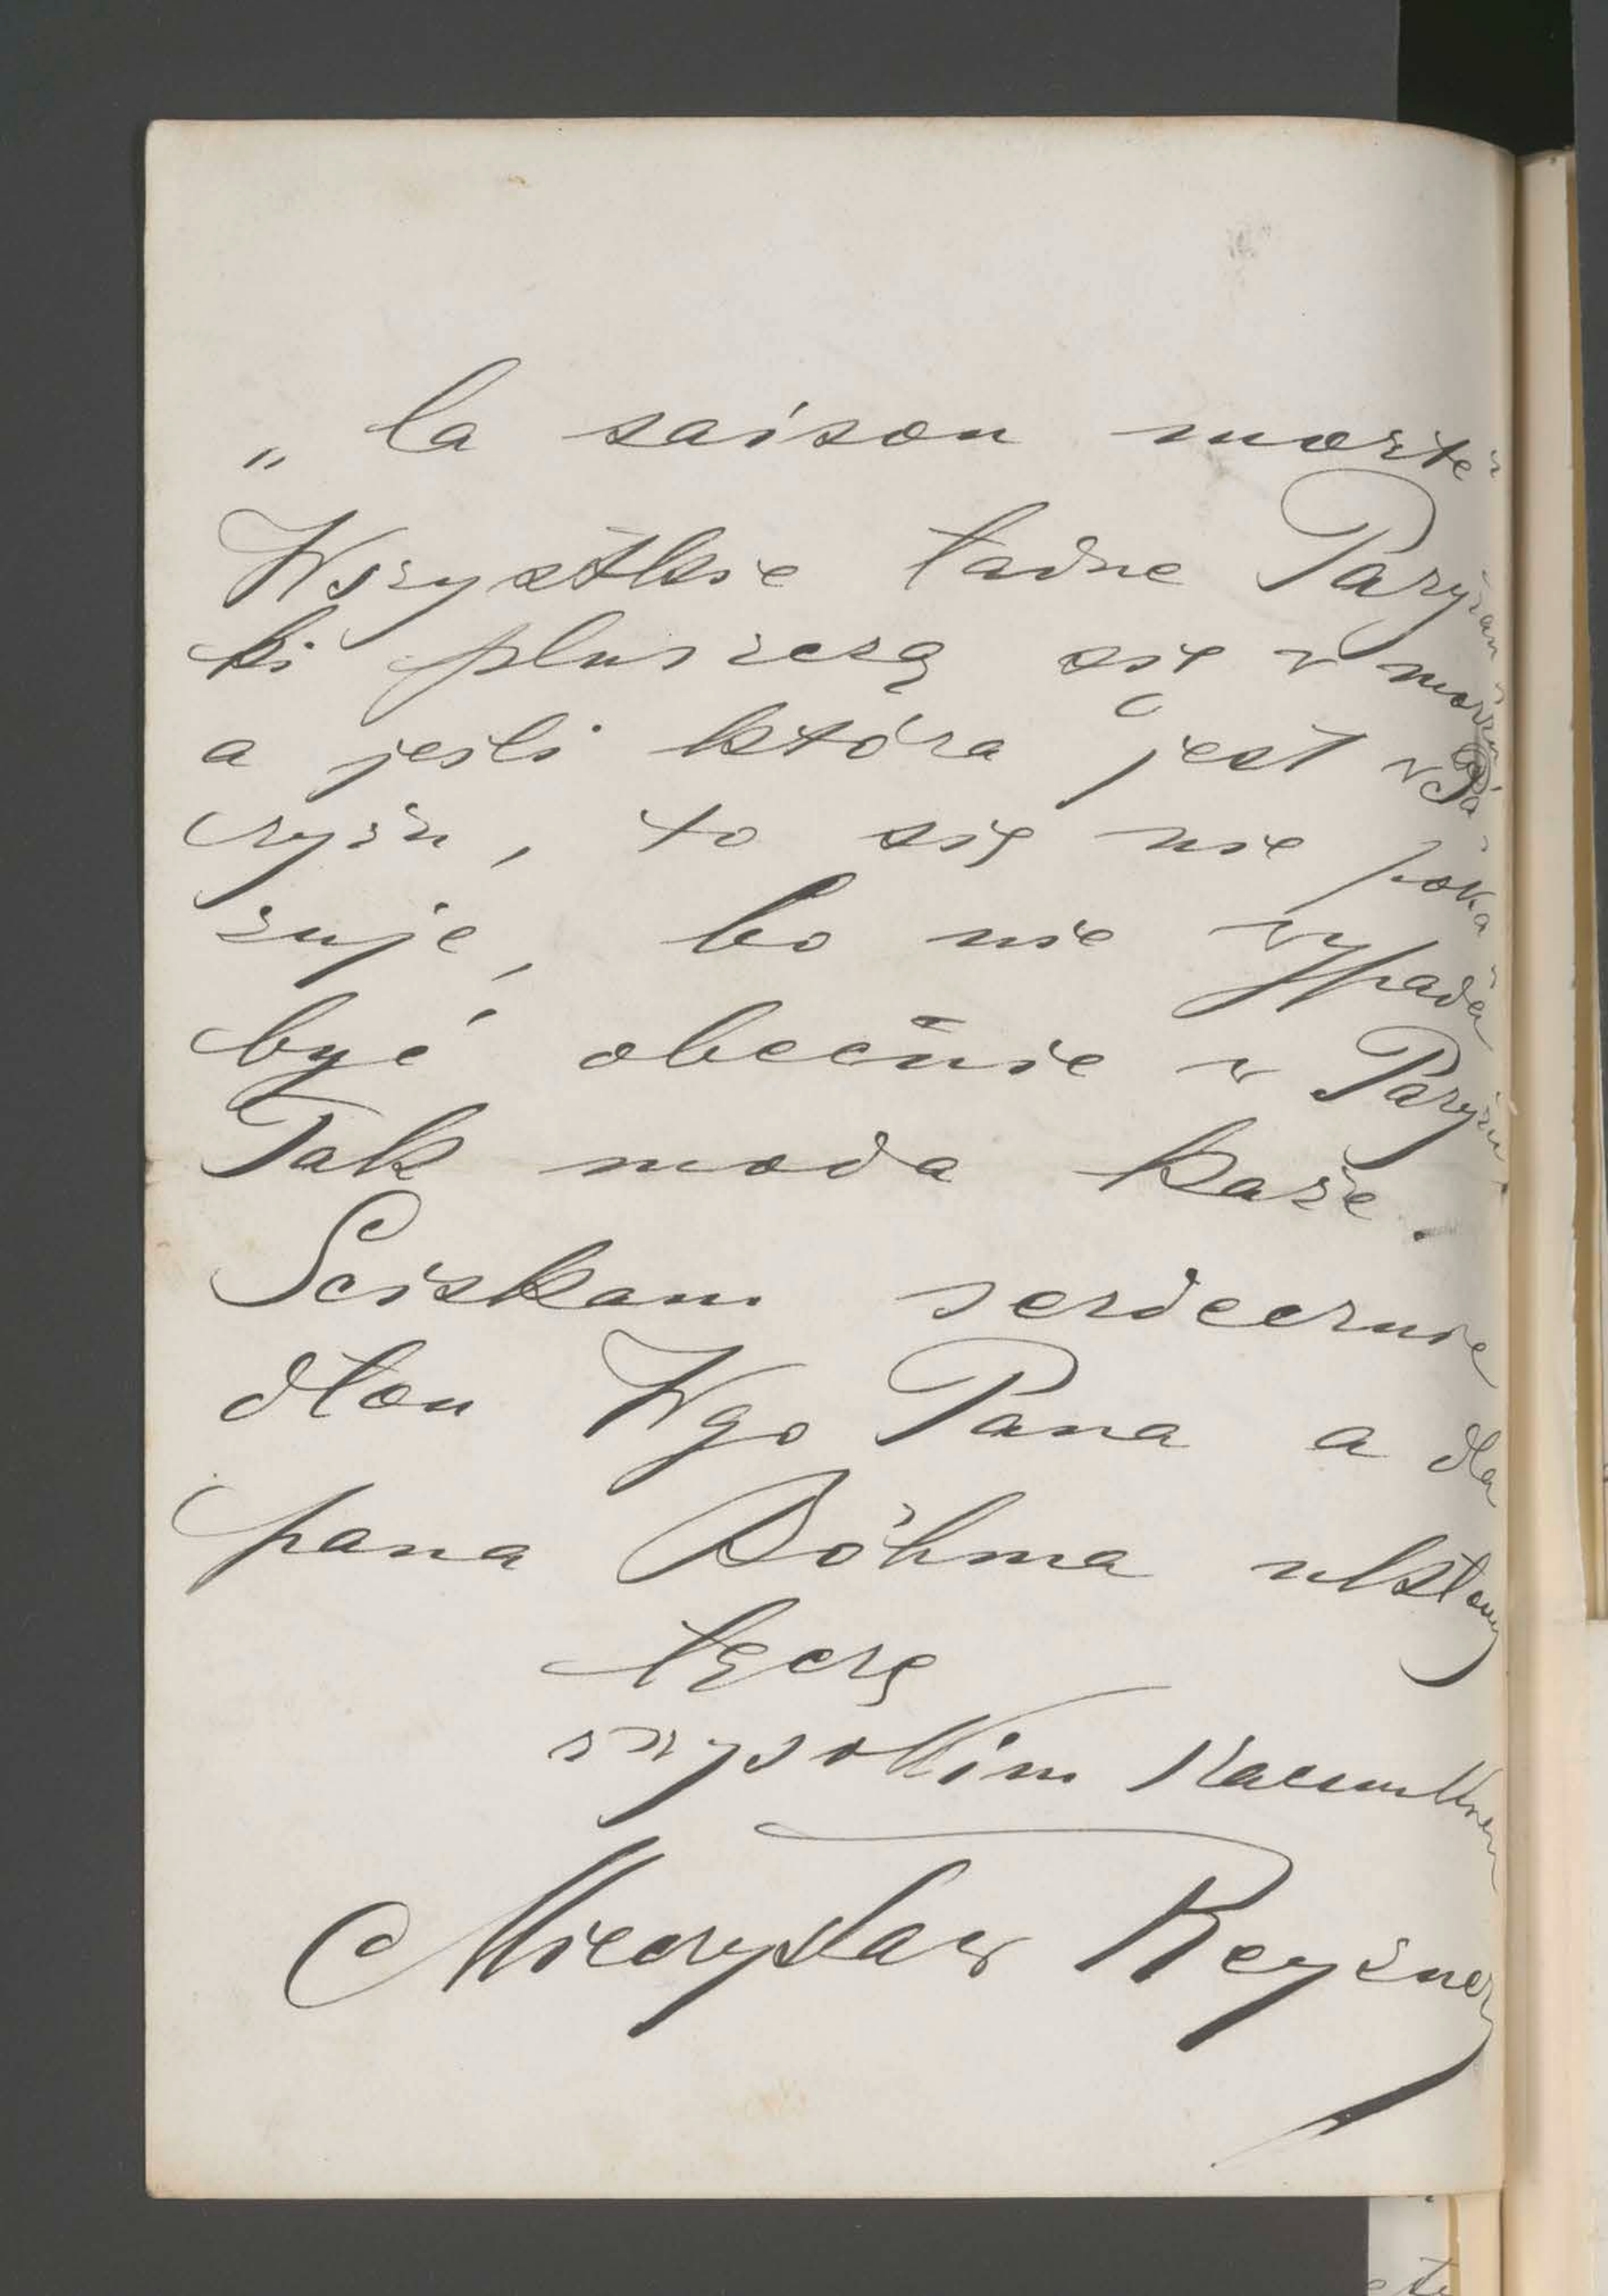 „la saison morte"
Wszystkie ładne Paryżan
ki pluszczą się w morzu
a jeśli która jest w Pa
ryżu, to się nie poka
zuje, bo nie wypada
być obecnie w Paryżu.
Tak moda każe.
Sciskam serdecznie
dłoń Wgo Pana a dla
pana Böhma ukłony
łączę
z wysokim szacunkiem
Mieczysław Reyzner